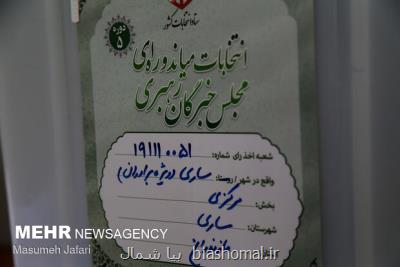 ستاد انتخابات کشور
دوره ۵
انتخابات میاندوره‌ای
مجلس خبرگان رهبری
شعبه اخذ رای شماره: ۱۹۱۱۱۰۰۵۱
واقع در شهر/روستا: ساری (ویژه برادران)
بخش: مرکزی
شهرستان: ساری
مازندران
MEHR NEWSAGENCY
Masumeh Jafari
biashomal.ir بیا شمال